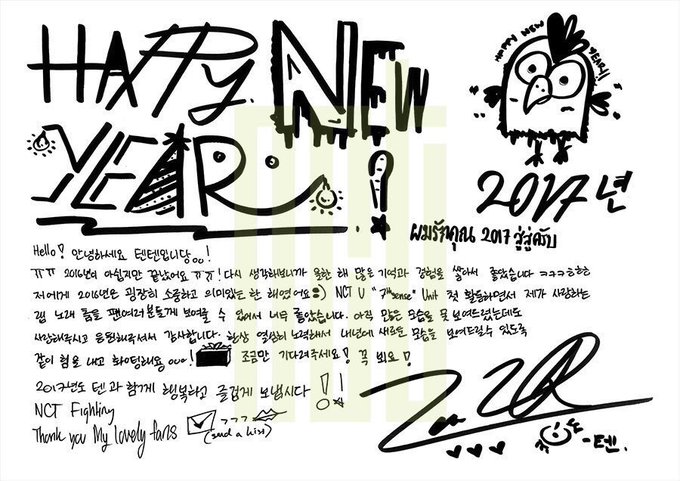 HAPPY NEW
YEAR!
HAPPY NEW YEAR!
2017년
ผมรักคุณ 2017 สู้สู้ครับ
Hello! 안녕하세요 텐텐입니당 !
ㅠㅠ 2016년이 아쉽지만 끝났어요 ㅠㅠ! 다시 생각해보니까 올한 해 많은 기억과 경험을 쌓아서 좋았습니다 ㅋㅋㅋㅎㅎㅎ
저에게 2016년은 굉장히 소중하고 의미있는 한 해였어요:) NCT U "7th sense" Unit 첫 활동하면서 제가 사랑하는
랩 노래 춤을 팬여러분들께 보여줄 수 있어서 너무 좋았습니다. 아직 많은 모습을 못 보여드렸는데도
사랑해주시고 응원해주셔서 감사합니다. 항상 열심히 노력해서 내년에 새로운 모습을 보여드릴수 있도록
같이 힘을 내고 화이팅해요 ! 조금만 기다려주세요! 꼭 봐요!
2017년도 텐과 함께 행복하고 즐겁게 보냅시다 !!
NCT Fighting
Thank you My lovely fans >>> (send a kiss)
-텐.